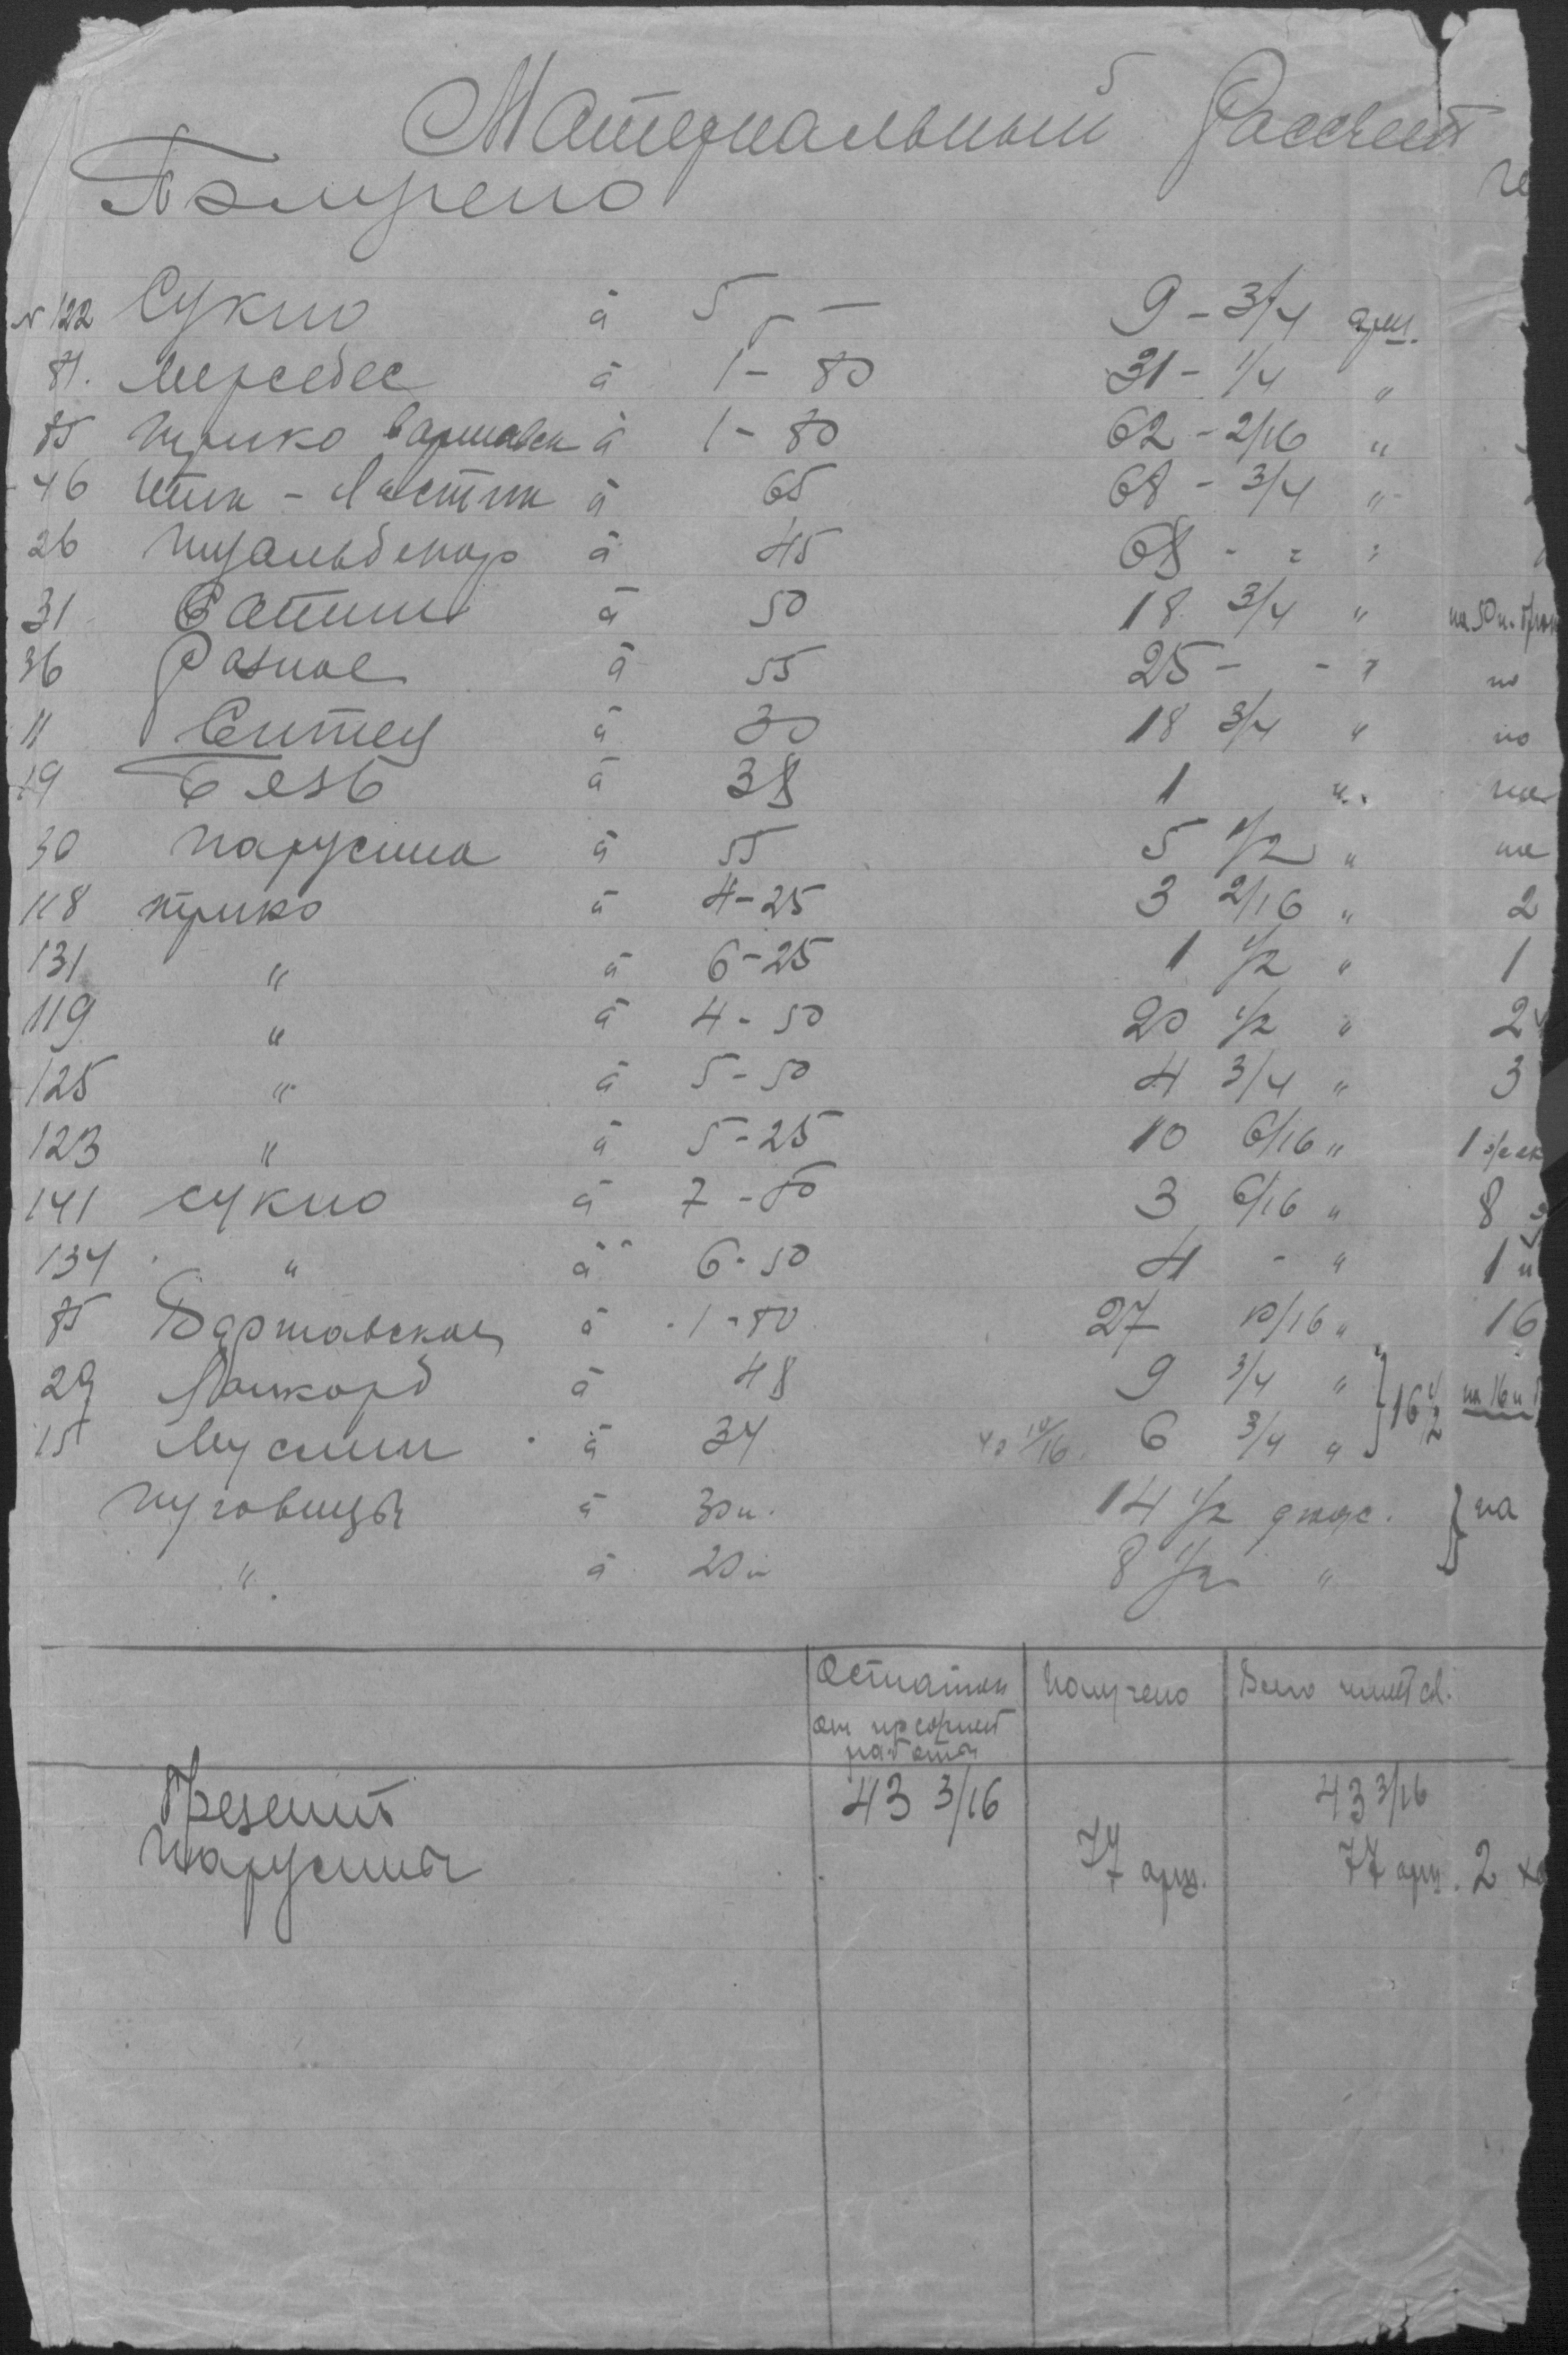 Материальный Рассчет
Получено
№ 122 Сукно à 5 – 9 - 3/4 арш.
81. Мерседес à 1 - 80 31 - 1/4 "
85 Трико варшавск à 1 - 80 62 - 2/16 "
46 Тик - Ластик à 65 68 - 3/4 "
26 à 45 68 - - "
31 Сатин à 50 18 3/4 " на 50 п. брюк
36 Разное à 55 25 - - " по
11 Ситец à 30 18 3/4 " по
19 Безь à 38 1 " на
30 парусина à 55 5 1/2 " на
118 трико à 4-25 3 2/16 " 2
131 " à 6-25 1 1/2 " 1
119 " à 4-50 20 1/2 " 2
125 " à 5-50 4 3/4 " 3
123 " à 5-25 10 6/16 " 1
141 сукно à 7-50 3 6/16 " 8
134 " à 6-50 4 - " 1
85 Варшавская à 1-80 27 10/16 " 16
29 à 48 9 3/4 " } 16 1/2 на 16 п
15 Муслин à 34 6 3/4 "
пуговицы à 30 к. 14 1/2 дюж. } на
" à 20 к 8 1/2 "
Остаток от прежней работы Получено Всего имеется.
Брезент 43 3/16 43 3/16
Парусины 77 арш. 77 арш. 2